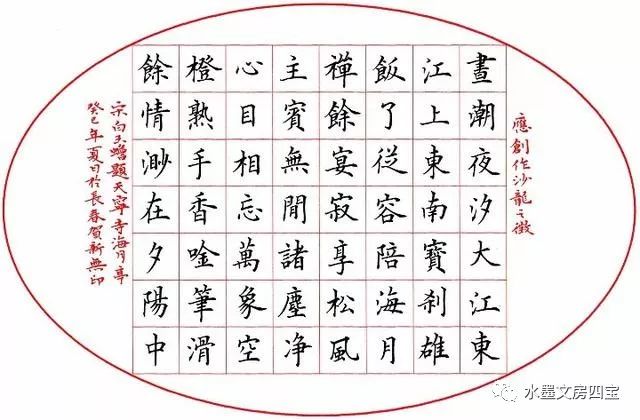 應創作沙龍之徵
晝潮夜汐大江東
江上東南寶刹雄
飯了從容陪海月
禪餘宴寂享松風
主賓無間諸塵净
心目相忘萬象空
橙熟手香唫筆滑
餘情渺在夕陽中
宋白玉蟾題天寧寺海月亭
癸巳年夏日於長春賀新無印
水墨文房四宝